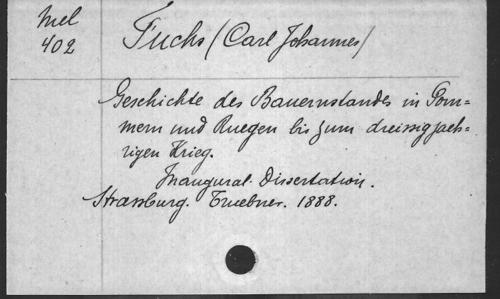 Mel
402
Fuchs (Carl Johannes)
Geschichte des Bauernstandes in Pom=
mern und Ruegen bis zum dreissigjaeh=
rigen Krieg.
Inaugural-Dissertation.
Strassburg. Truebner. 1888.